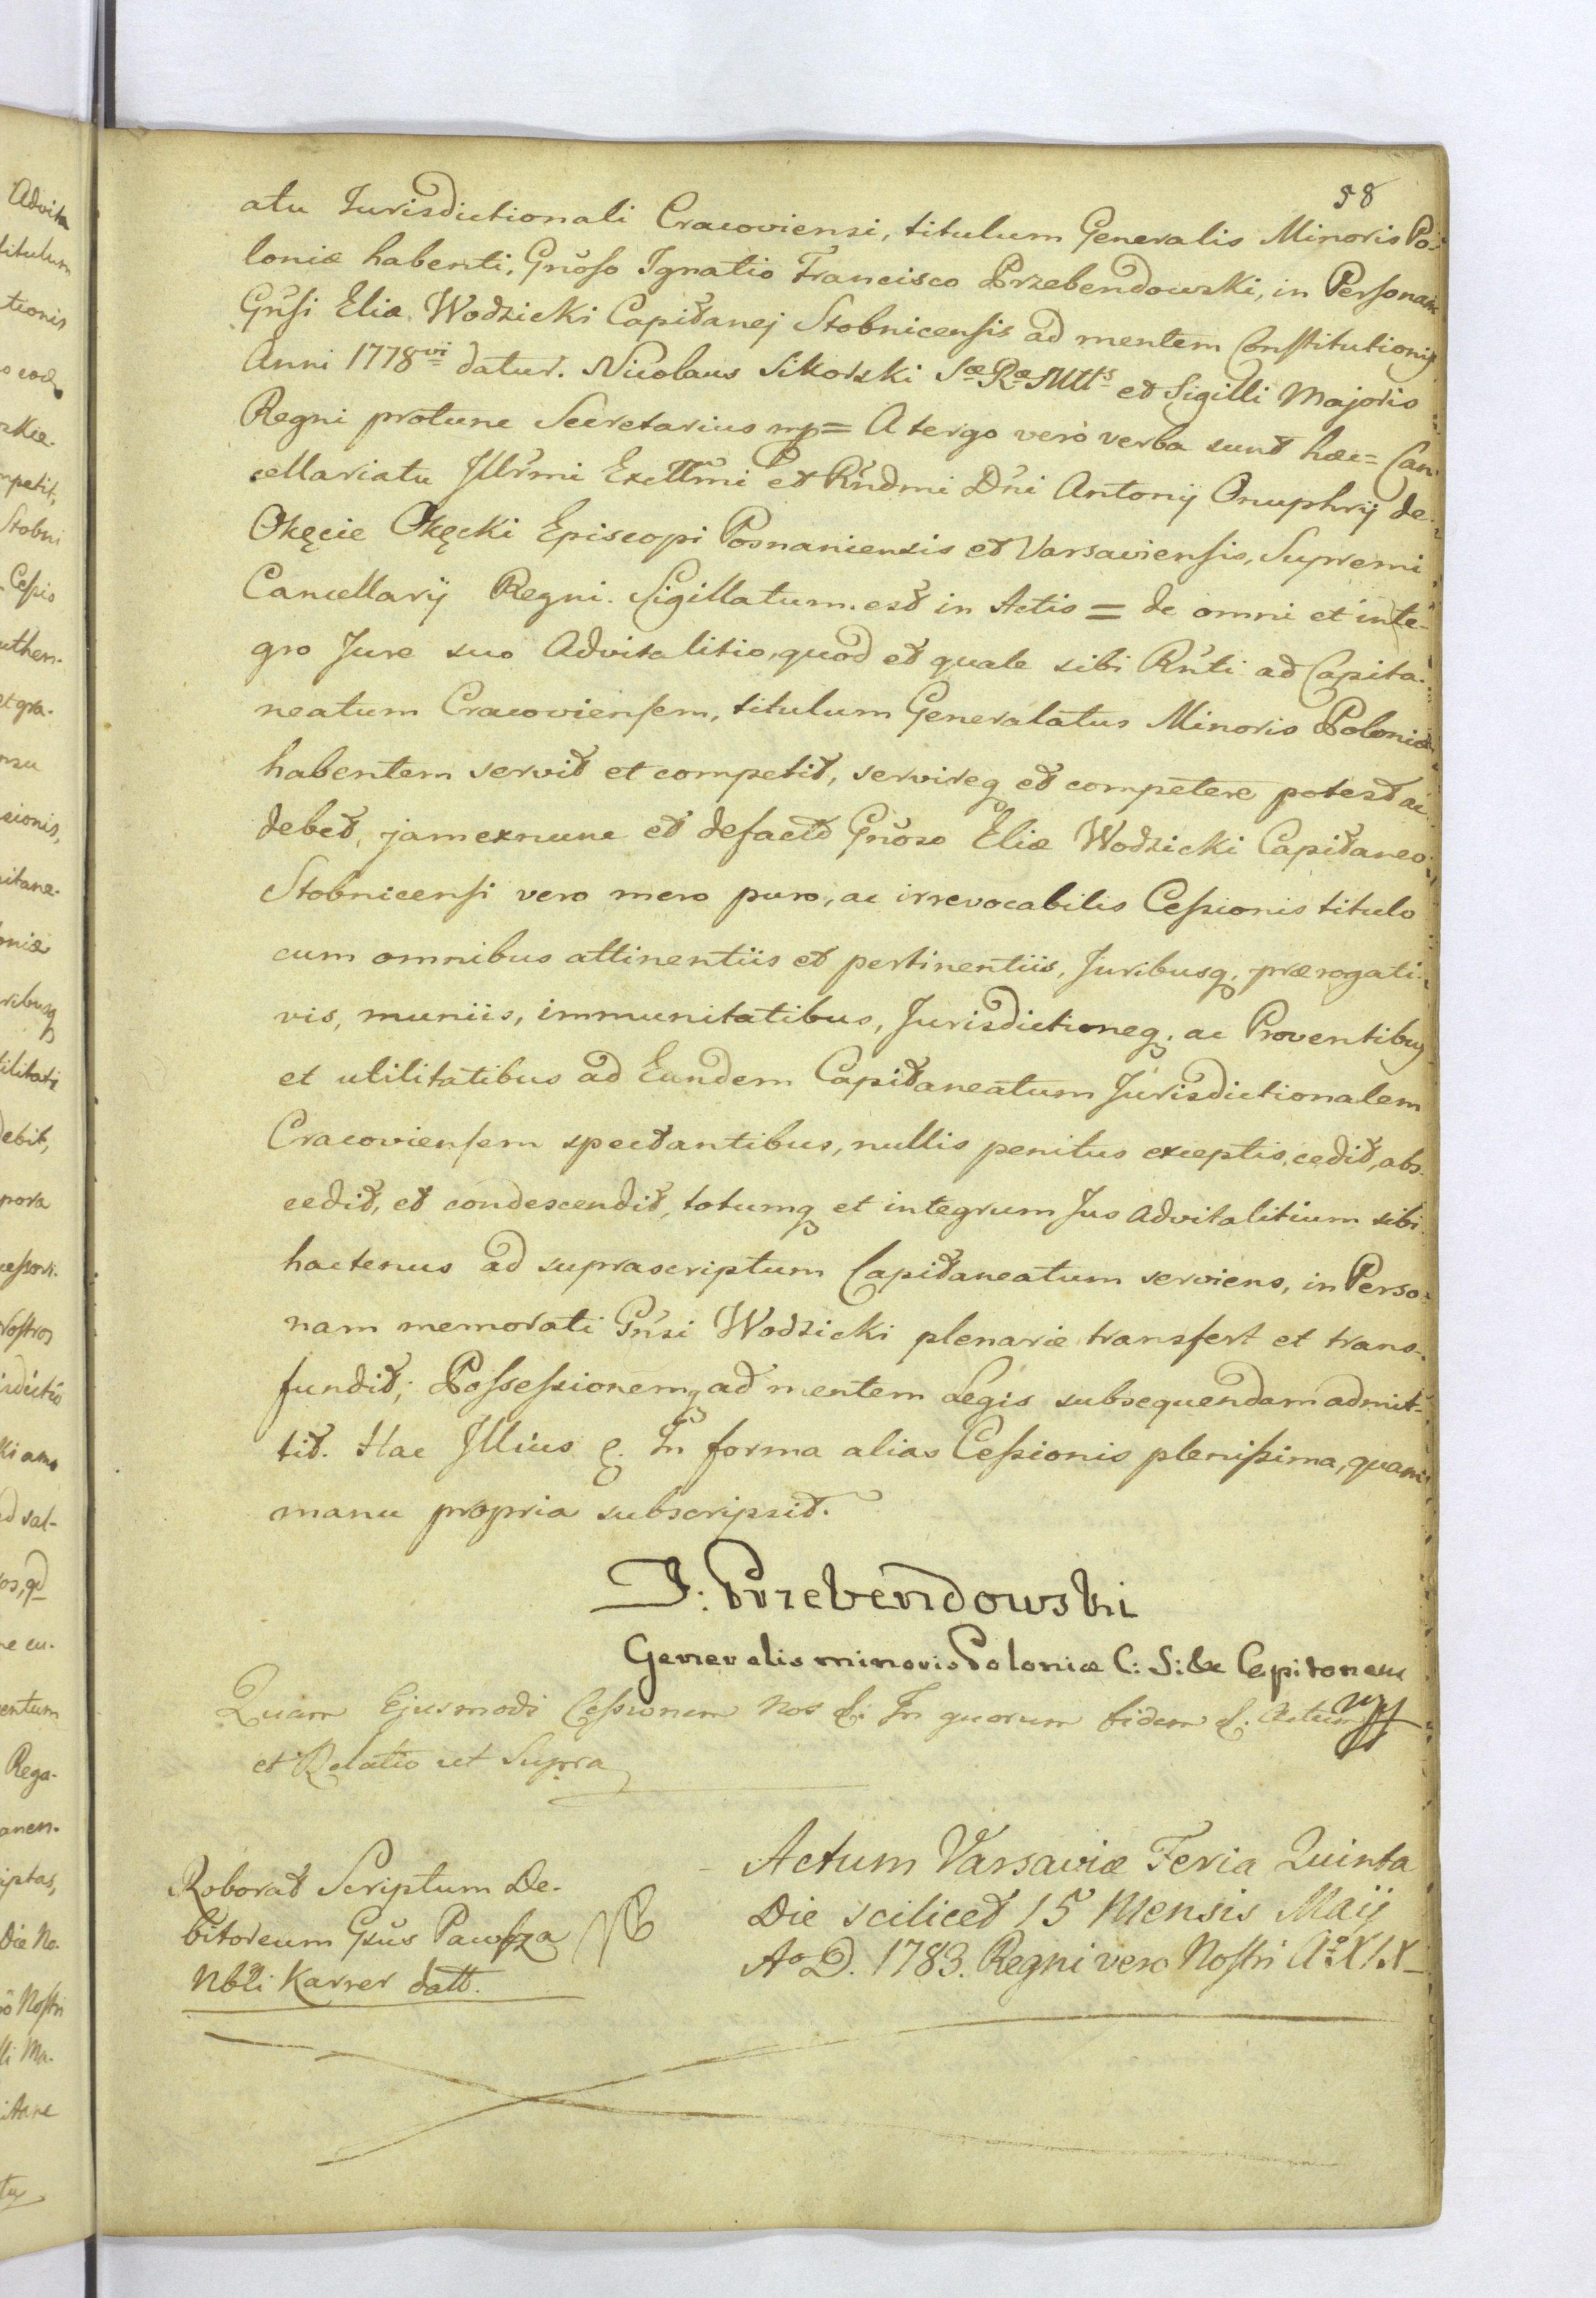 58
atu Jurisdictionali Cracoviensi, titulum Generalis Minoris Po-
loniæ habenti, Gnõso Ignatio Francisco Przebendowski, in Personam
Gnsi Eliæ Wodzicki Capitanej Stobnicensis ad mentem Constitutionis
Anni 1778vi datur. Nicolaus Sikorski Sæ Ræ Mtts et Sigilli Majoris
Regni protunc Secretarius mp= A tergo verò verba sunt hæc= Can-
cellariatu Jllrmi Excllmi et Rndmi Dni Antonij Onuphrij de
Okęcie Okęcki Episcopi Posnaniensis et Varsaviensis, Supremi
Cancellarij Regni. Sigillatum. est in Actis = de omni et inte-
gro Jure suo Advitalitio, quod et quale sibi Rnti ad Capita-
neatum Cracoviensem, titulum Generalatus Minoris Poloniæ
habentem servit et competit, servireq et competere potest ac
debet, jam exnunc et defacto Gnõso Eliæ Wodzicki Capitaneo
Stobnicensi vero mero puro, ac irrevocabilis Cessionis titulo
cum omnibus attinentiis et pertinentiis, Juribusq, prærogati-
vis, muniis, immunitatibus, Jurisdictioneq, ac Proventibus
et utilitatibus ad Eundem Capitaneatum Jurisdictionalem
Cracoviensem spectantibus, nullis penitus exceptis, cedit, abs-
cedit, et condescendit, totumq et integrum Jus Advitalitium sibi
hactenus ad suprascriptum Capitaneatum serviens, in Perso-
nam memorati Gnsi Wodzicki plenarie transfert et trans-
fundit; Possessionemq ad mentem Legis subsequendam admit-
tit. Hac Jllius &. In forma alias Cessionis plenissima, quam
manu propria subscripsit.
J: Przebendowski
Generalis minoris Poloniæ C: S: & Capitaneus
mpp
Quam Ejusmodi Cessionem Nos &: In quorum fidem &. Actum
et Relatio ut Supra
Roborat Scriptum De-
bitoreum Gsus Pawsza
Nbli Karrer datt.
Actum Varsaviæ Feria Quinta
Die scilicet 15 Mensis Maij
Ao D. 1783. Regni vero Nostri Ao XIX